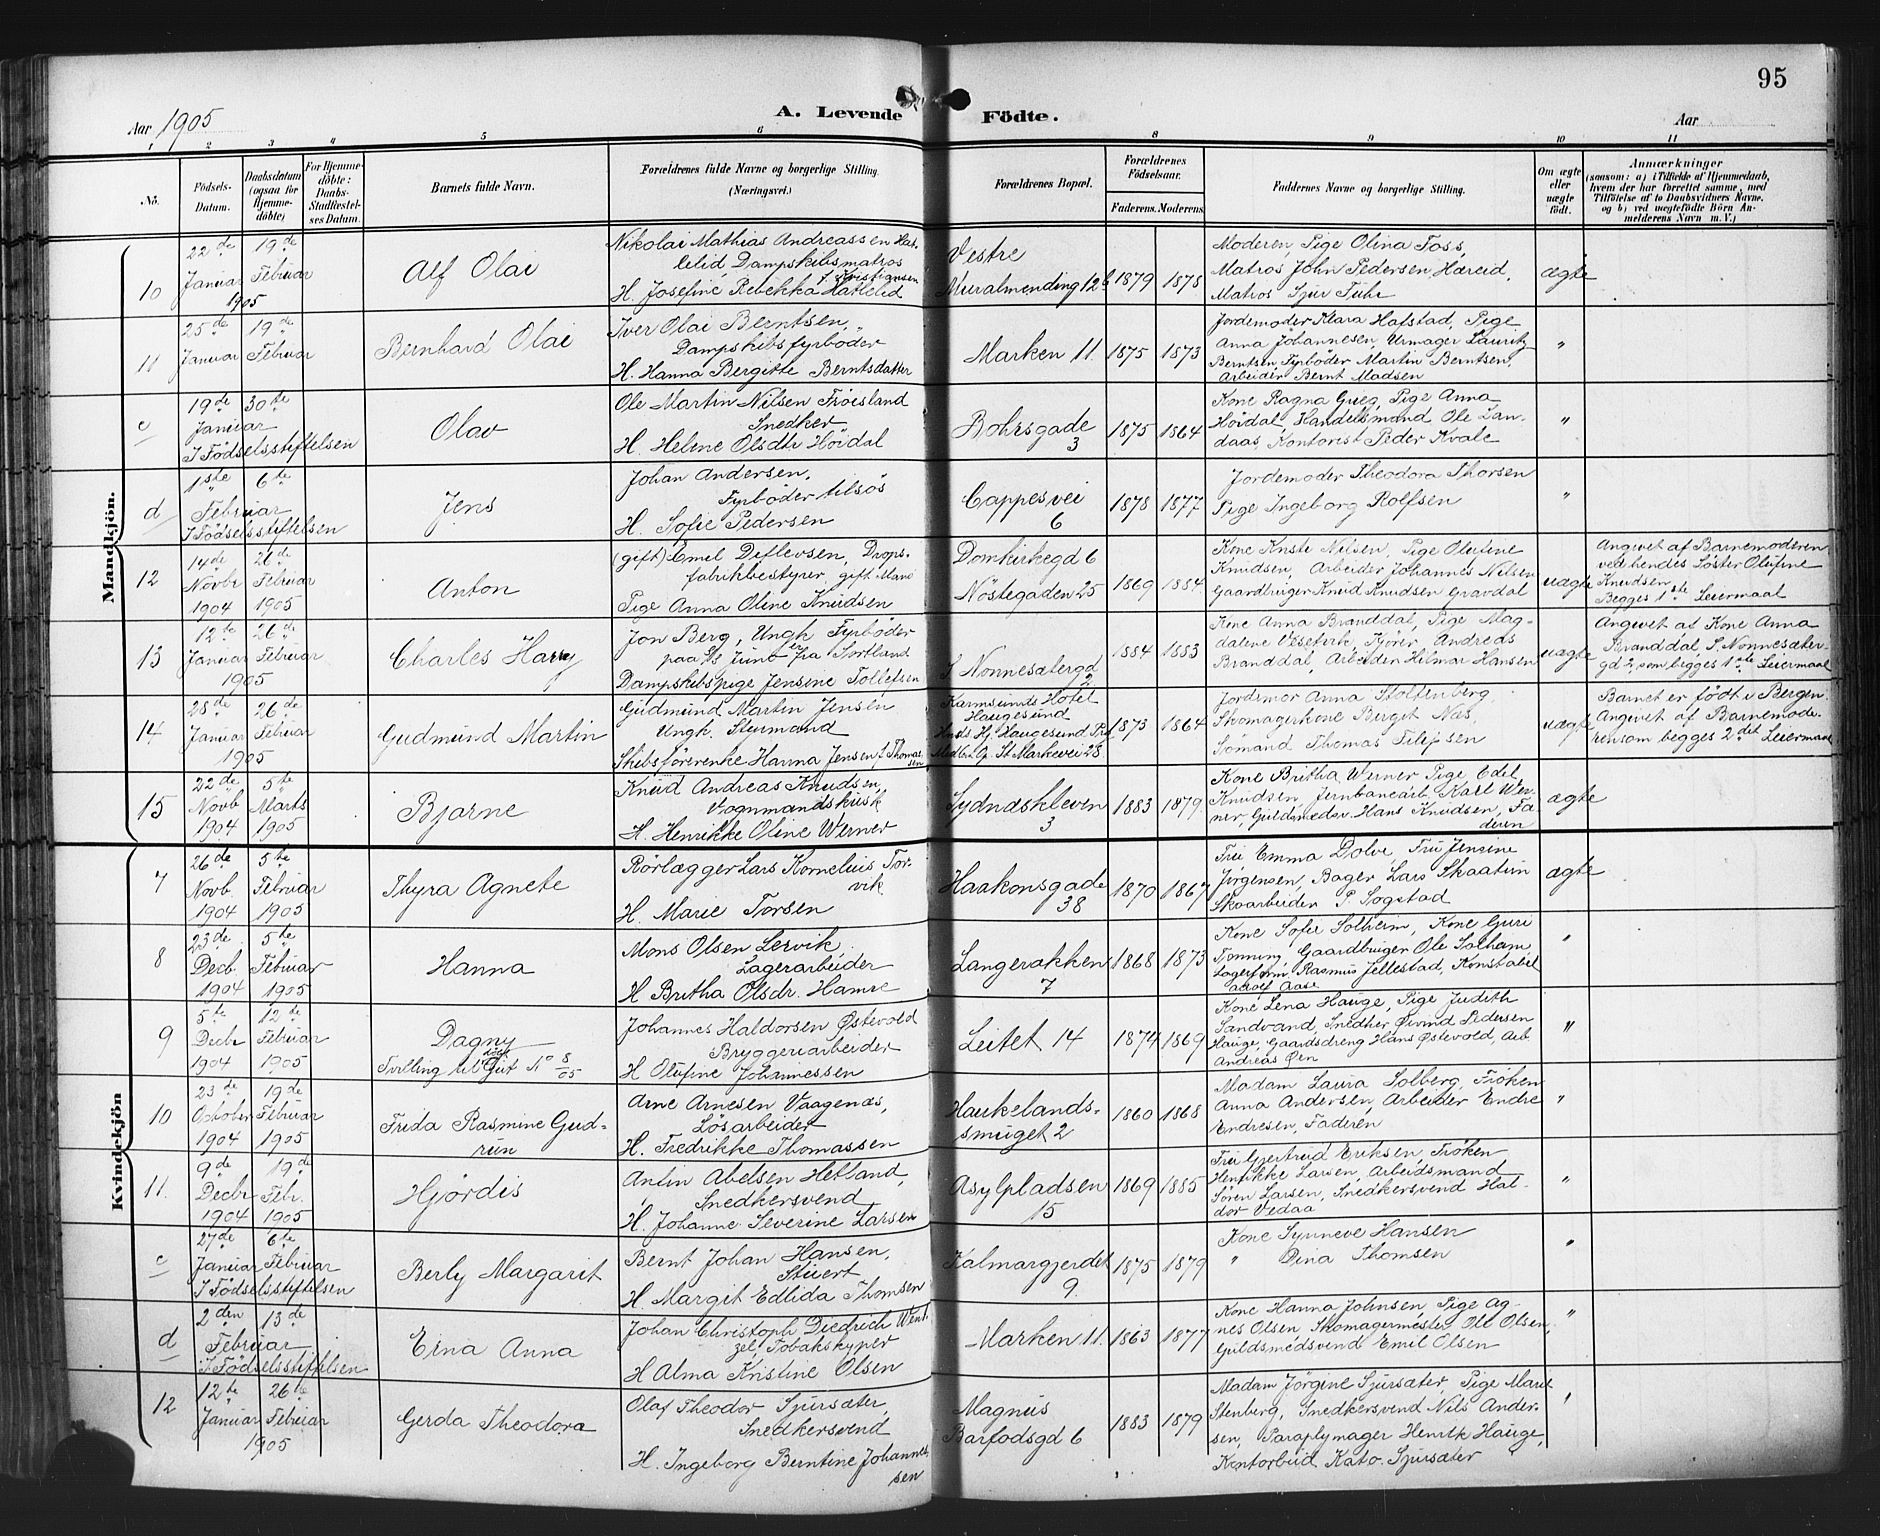 95
Aar 1905
A. Levende Födte.
Aar
1 2 3 4 5 6 8 9 10 11
No.
Födsels-Datum.
Daabsdatum (ogsaa for Hjemme-döbte)
For Hjemme-döbte: Daabs-Stadfæstel-ses Datum.
Barnets fulde Navn.
Forældrenes fulde Navne og borgerlige Stilling. (Næringsvei.)
Forældrenes Bopæl.
Forældrenes Födselsaar.
Faderens. Moderens
Faddernes Navne og borgerlige Stilling.
Om ægte eller uægte födt.
Anmærkninger
(saasom: a) i Tilfælde af Hjemmedaab, hvem der har forrettet samme, med Tilföielse af to Daabsvidners Navne. og b) ved uægtefödte Börn Anmelderens Navn m. V.)
Mandkjön.
10
22de Januar 19de Februar
1905
Alf Olai
Nikolai Mathias Andreassen Hat-
lelid Dampskibsmatros
H. Josefine Rebekka f. Kristiansen Hatlelid
Vestre
Muralmending 12b
1879 1878
Moderen, Pige Olina Foss,
Matros John Pedersen Hæreid,
Matros Sjur Fuhr
ægte
11
25de Januar 19de Februar
Bernhard Olai
Iver Olai Berntsen,
Dampskibsfyrböder
H. Hanna Bergitte Berntsdatter
Marken 11.
1875 1873
Jordemoder Klara Hafstad, Pige
Anna Johannesen, Urmager Lauritz
Berntsen, Fyrböder Martin Berntsen,
Arbeider Bernt Madsen
"
c
19de 30te
Januar
I Födselsstiftelsen
Olav
Ole Martin Nilsen Fröesland
Snedker
H. Helene Olsdtr Höidal
Bohrsgade
3
1875 1864
Kone Ragna Grieg, Pige Anna
Höidal, Handelsmand Ole Lan-
daas, Kontorist Peder Kvale
"
d
1ste 6te
Februar
I Födselsstiftelsen
Jens
Johan Andersen,
Fyrböder tilsös
H. Sofie Pedersen
Cappesvei
6
1878 1877
Jordemoder Theodora Thorsen
Pige Ingeborg Rolfsen
"
12
14de Novbr 1904
26de Februar 1905
Anton
(gift) Emil Ditlevsen, Drops-
fabrikbestyrer, gift Mand
Pige Anna Oline Knudsen
Domkirkegd 6
Nöstegaden 25
1869 1884
Kone Knste Nilsen, Pige Olufine
Knudsen, Arbeider Johannes Nilsen
Gaardbruger Knud Knudsen Gravdal
uægte
Angivet af Barnemoderen
ved hendes Söster Olufine
Knudsen
Begges 1ste Leiermaal
13
12te Januar 26de Februar
1905
Charles Harry
Jon Berg, Ungk. Fyrböder
paa S/s Juno fra Sortland
Dampskibspige Jensine Tollefsen
S. Nonnesætergd
2
1884 1883
Kone Anna Branddal, Pige Mag-
dalene Vesetvik, Kjörer Andreas
Branddal, Arbeider Hilmar Hansen
uægte
Angivet af Kone Anna
Branddal, S. Nonnesæter-
gd 2, som begges 1ste Leiermaal
14
28de Januar 26de Februar
1905
Gudmund Martin
Gudmund Martin Jensen
Ungk. Styrmand
Skibsförerenke Hanna Jensen f. Thomassen
Karmsunds Hotel
Haugesund
St Markevei 28
1873 1864
Jordemor Anna Stoltenberg
Skomagerkone Bergit Næs,
Sömand Thomas Filipsen
uægte
Barnet er födt i Bergen.
Angivet af Barnemode-
ren som begges 2det Leiermaal
15
22de Novb 1904
5te Marts 1905
Bjarne
Knud Andreas Knudsen
Vognmandskusk
H. Henrikke Oline Werner
Sydnæskleven
3
1883 1879
Kone Britha Werner Pige Edel
Knudsen, Jernbanearb. Karl Wer-
ner, Guldsmedsv. Hans Knudsen, Fa-
deren
ægte
Kvindekjön
7
26de Novb. 1904
5te Februar 1905
Thyra Agnete
Rörlægger Lars Kornelius Tor-
vik
H. Marie Torsen
Haakonsgade
38
1870 1867
Fru Emma Dolve, Fru Jensine
Jörgensen, Bager Lars Skaatun
Skoarbeider P. Sogstad
ægte
8
23de Decb. 1904
5te Februar 1905
Hanna
Mons Olsen Lervik
Lagerarbeider
H Britha Olsdr. Hamre
Langerækken
7
1868 1873
Kone Sofie Solheim, Kone Guri
Tjönning, Gaardbruger Ole Solheim
Lagerform. Rasmus Jellestad, Konstabel
Adolf Aase
"
9
5te Decbr 1904
12te Februar 1905
Dagny
Tvilling til död Gut No 8/05
Johannes Haldorsen Østevold
Bryggeriarbeider
H Olufine Johannessen
Leitet 14
1874 1869
Kone Lena Hauge, Pige Judith
Sandvand, Snedker Øivind Pedersen
Hauge, Gaardsdreng Hans Østevold, Arb
Andreas Øen
"
10
23de October 1904
19de Februar 1905
Frida Rasmine Gud-
run
Arne Arnesen Vaagenæs,
Lösarbeider
H. Fredrikke Thomassen
Haukelands-
smuget 2
1860 1868
Madam Laura Solberg, Fröken
Anna Andersen, Arbeider Endre
Endresen, Faderen
"
11.
9de Decbr 1904
19de Febr. 1905
Hjördis
Antin Abelsen Hetland,
Snedkersvend
H. Johanne Severine Larsen
Asylpladsen
15
1869 1885
Fru Gjertrud Eriksen, Fröken
Henrikke Larsen, Arbeidsmand
Sören Larsen, Snedkersvend Hal-
dor Vedaa
"
c
27de Januar 6te Februar
I Födselsstiftelsen
Berly Margarit
Bernt Johan Hansen,
Stuert
H. Margit Edlida Thomsen
Kalmargjerdet
9.
1875 1879
Kone Synneve Hansen
" Dina Thomsen
"
d
2den 13de
Februar
I Födselsstiftelsen
Eina Anna
Johan Christoph Diedrich Went-
zel, Tobakskyper
H Alma Kristine Olsen
Marken 11.
1863 1877
Kone Hanna Johnsen, Pige Ag-
nes Olsen, Skomagermester Ole Olsen,
Guldsmedsvend Emil Olsen
"
12
12te Januar 26de Februar
1905
Gerda Theodora
Olaf Theodor Sjursæter,
Snedkersvend
H. Ingeborg Berntine Johannes-
sen
Magnus
Barfodsgd 6
1883 1879
Madam Jörgine Sjursæter, Pige Marit
Stenberg, Snedkersvend Nils Ander-
sen, Paraplymager Henrik Hauge,
Kontorbud Kato Sjursæter
"